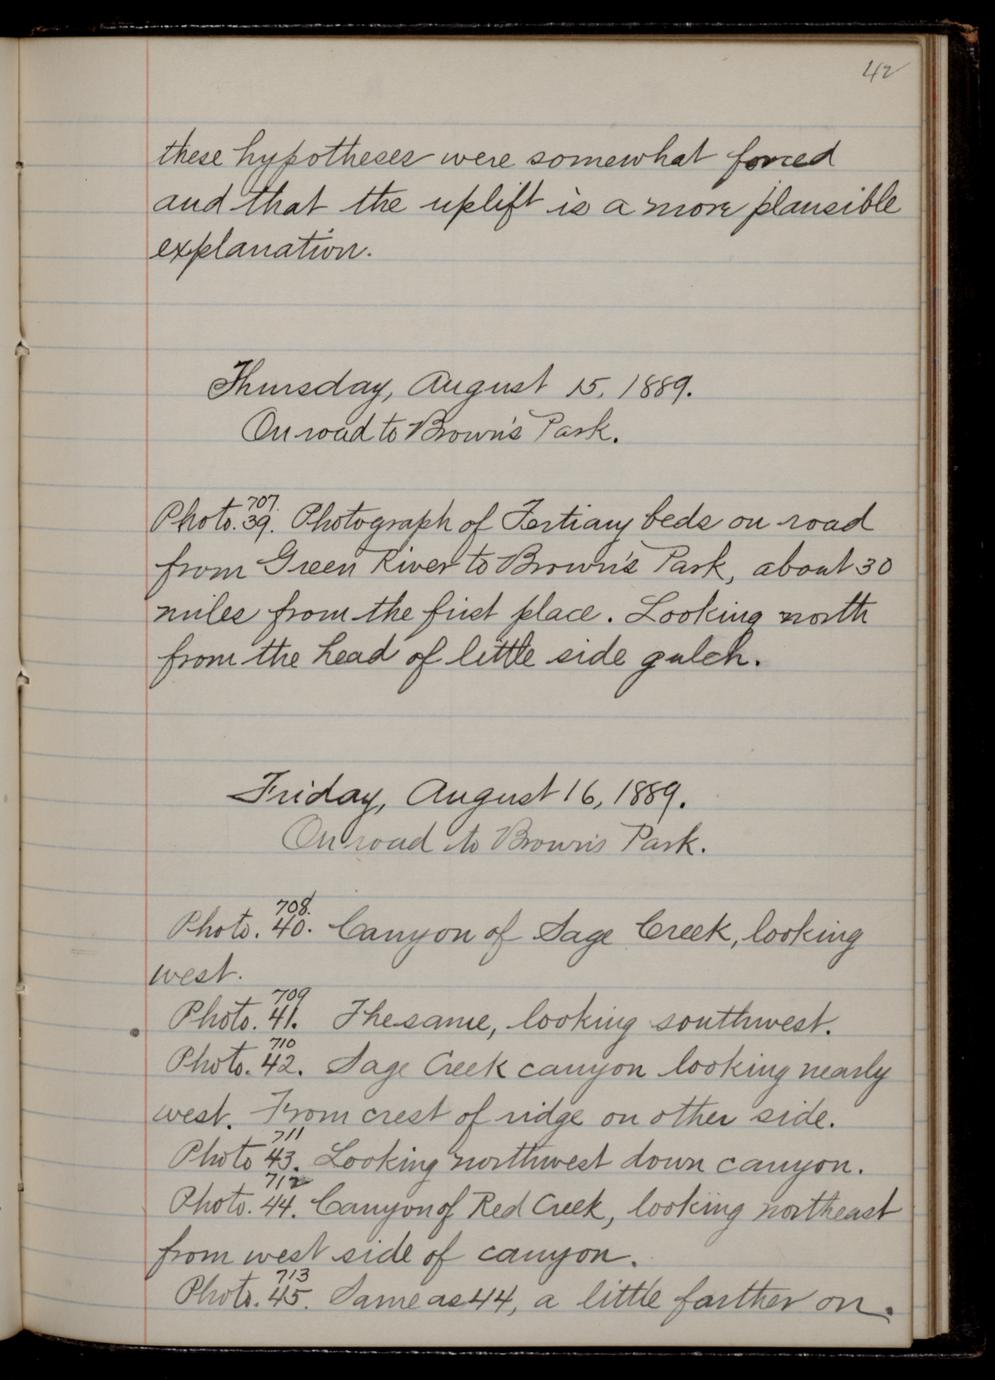 42
these hypotheses were somewhat forced
and that the uplift is a more plausible
explanation.
Thursday, August 15, 1889.
On road to Brown's Park.
707.
Photo. 39. Photograph of Tertiary beds on road
from Green River to Brown's Park, about 30
miles from the first place. Looking north
from the head of little side gulch.
Friday, August 16, 1889.
On road to Brown's Park.
708.
Photo. 40. Canyon of Sage Creek, looking
west.
709
Photo. 41. The same, looking southwest.
710
Photo. 42. Sage Creek canyon looking nearly
west. From crest of ridge on other side.
711
Photo 43. Looking northwest down canyon.
712
Photo. 44. Canyon of Red Creek, looking northeast
from west side of canyon.
713
Photo. 45. Same as 44, a little farther on.